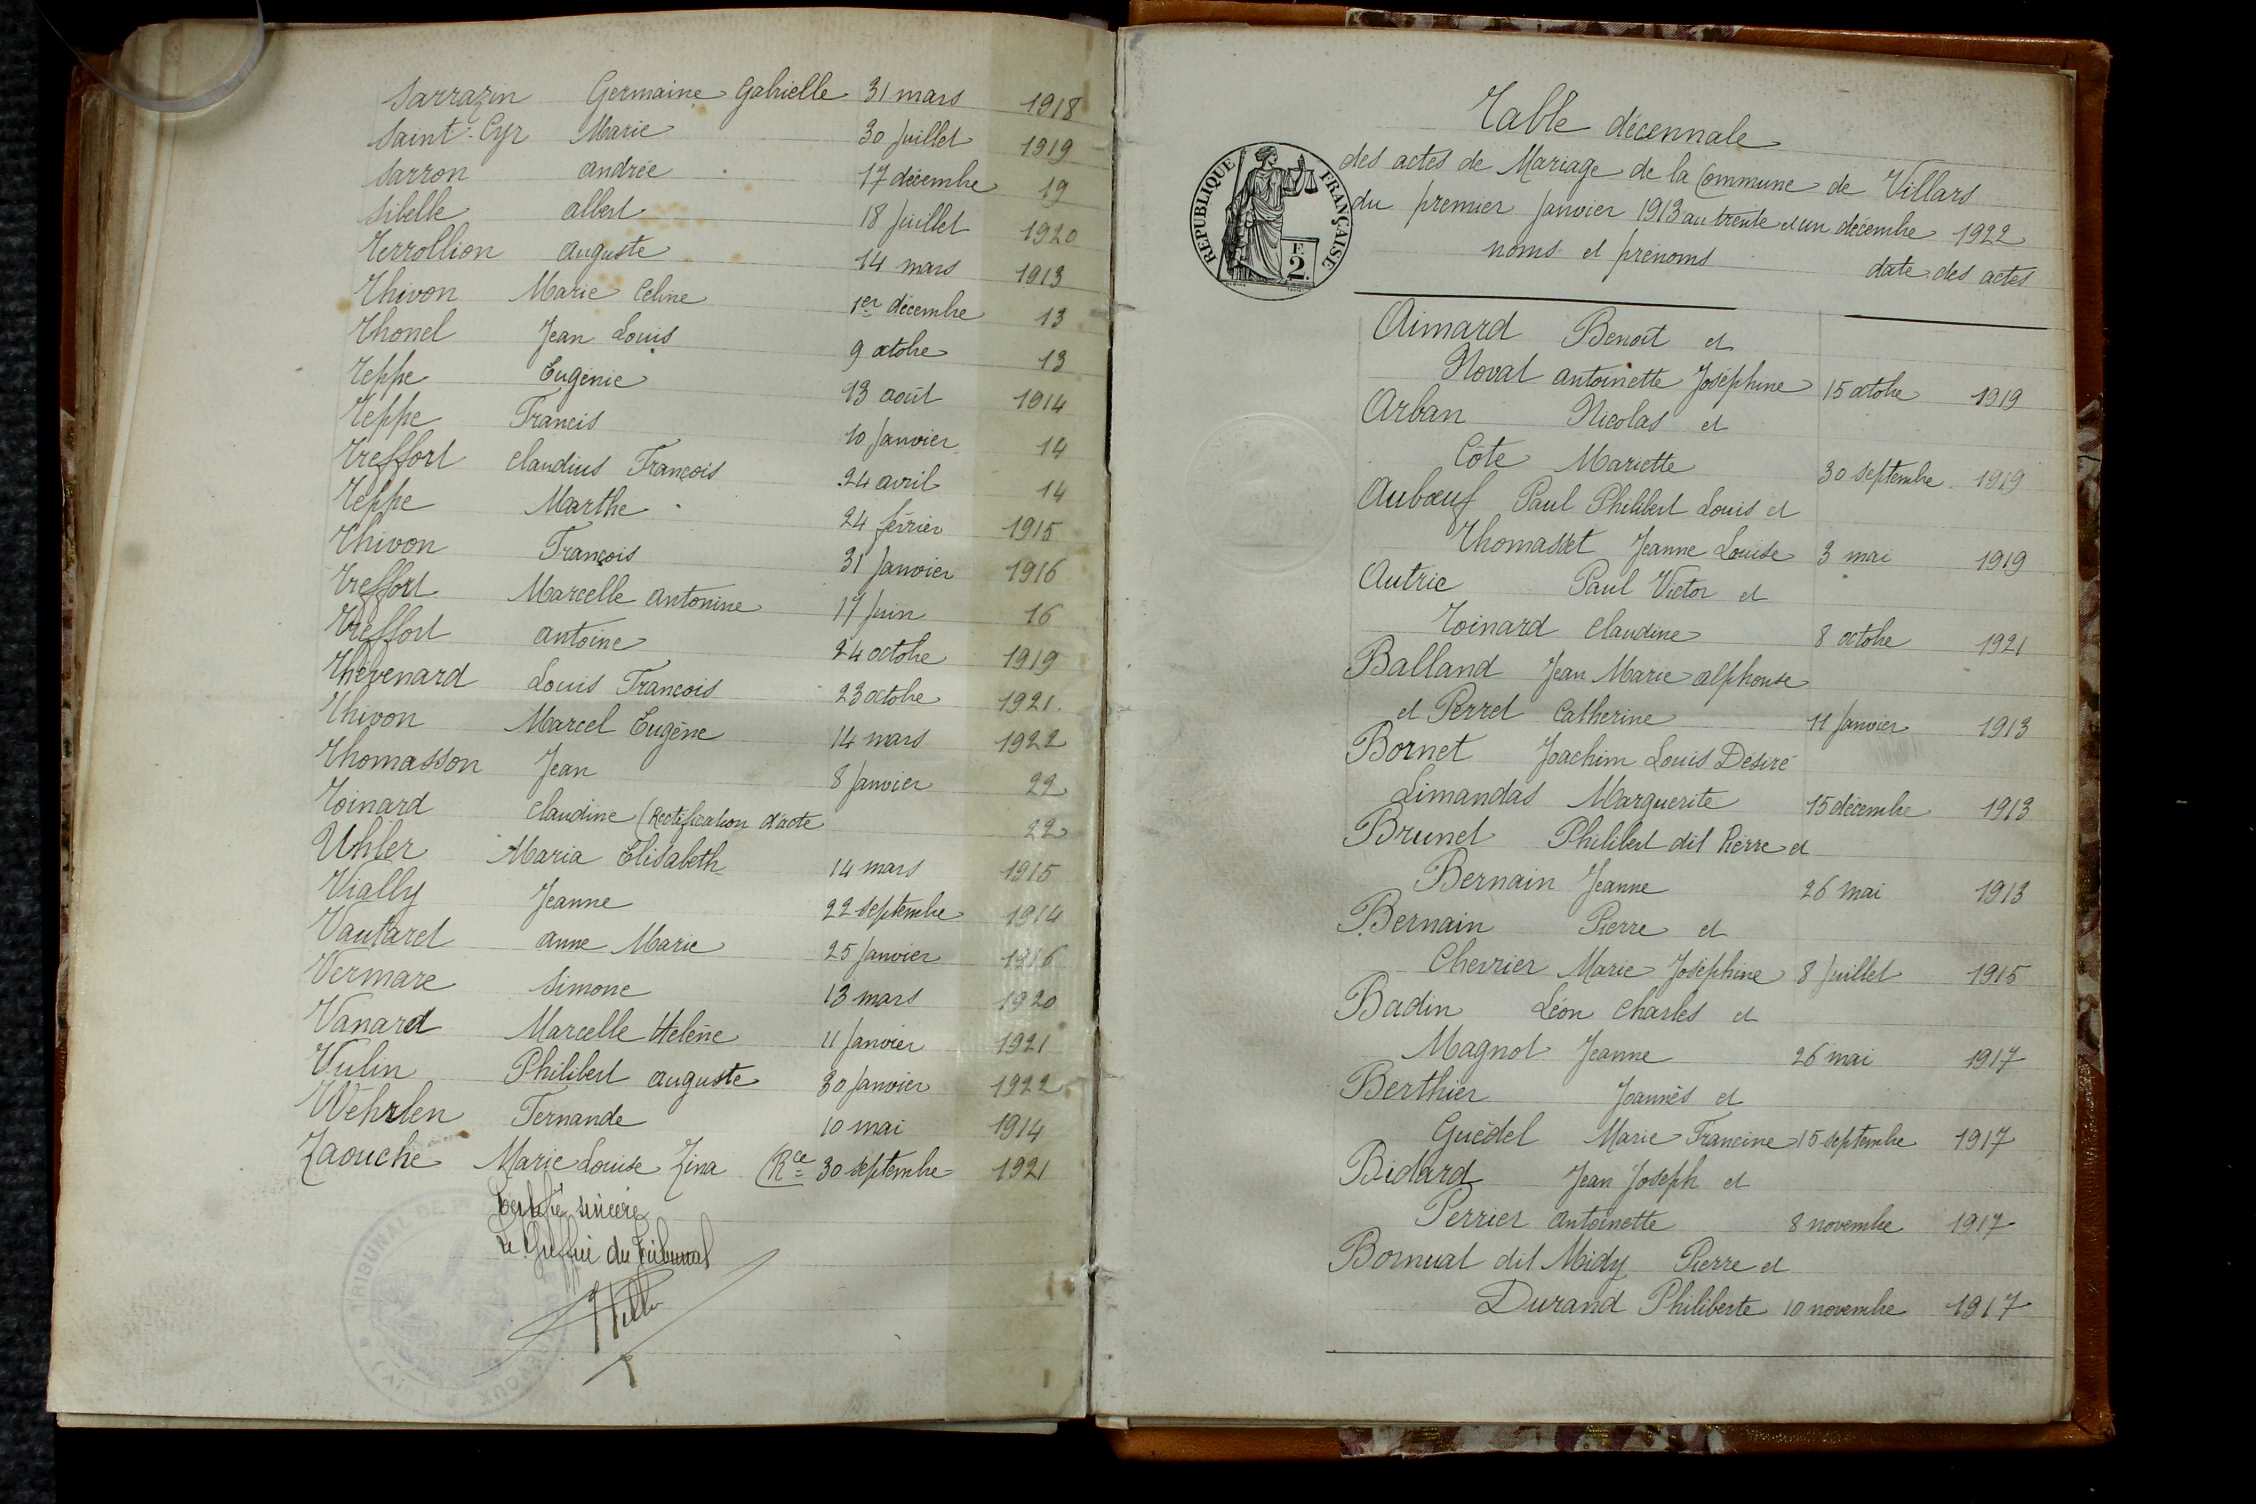 Sarrazin Germaine Gabrielle 31 mars 1918
Saint-Cyr Marie 30 Juillet 1919
Sarron andrée 17 décembre 19
Sibelle albert 18 Juillet 1920
Terrollion auguste 14 mars 1913
Thivon Marie Céline 1er décembre 13
Thonel Jean Louis 9 octobre 13
Teppe Eugénie 13 août 1914
Teppe Francis 10 Janvier 14
Treffort Claudius François 24 avril 14
Teppe Marthe 24 février 1915
Thivon François 31 Janvier 1916
Treffort Marcelle Antonine 17 Juin 16
Treffort Antoine 24 octobre 1919
Thévenard Louis François 23 octobre 1921.
Thivon Marcel Eugène 14 mars 1922
Thomasson Jean 8 Janvier 22
Toinard Claudine (Rectification d'acte 22
Uhler Maria Elisabeth 14 mars 1915
Vially Jeanne 22 septembre 1914
Vautaret Anne Marie 25 Janvier 1916
Vermare Simone 13 mars 1920
Vanard Marcelle Hélène 11 Janvier 1921
Vulin Philibert auguste 30 Janvier 1922
Wehrlen Fernande 10 mai 1914
Zaouche Marie Louise Zina (Rce 30 septembre 1921
Certifié sincère
Le Greffier du Tribunal
TRIBUNAL DE
Table décennale
des actes de Mariage de la Commune de Villars
du premier Janvier 1913 au trente et un décembre 1922
noms et prénoms date des actes
RÉPUBLIQUE FRANÇAISE
F.
2.
Aimard Benoît et
Noval antoinette Joséphine 15 octobre 1919
Arban Nicolas et
Côte Mariette 30 septembre 1919
Aubœuf Paul Philibert Louis et
Thomasset Jeanne Louise 3 mai 1919
Autric Paul Victor et
Toinard Claudine 8 octobre 1921
Balland Jean Marie alphonse
et Perret Catherine 11 Janvier 1913
Bornet Joachim Louis Désiré
Limandas Marguerite 15 décembre 1913
Brunet Philibert dit Pierre et
Bernain Jeanne 26 mai 1913
Bernain Pierre et
Chevrier Marie Joséphine 8 Juillet 1915
Badin Léon Charles et
Magnot Jeanne 26 mai 1917
Berthier Joannès et
Guédel Marie Francine 15 septembre 1917
Bidard Jean Joseph et
Perrier Antoinette 8 novembre 1917
Bornuat dit Midy Pierre et
Durand Philiberte 10 novembre 1917